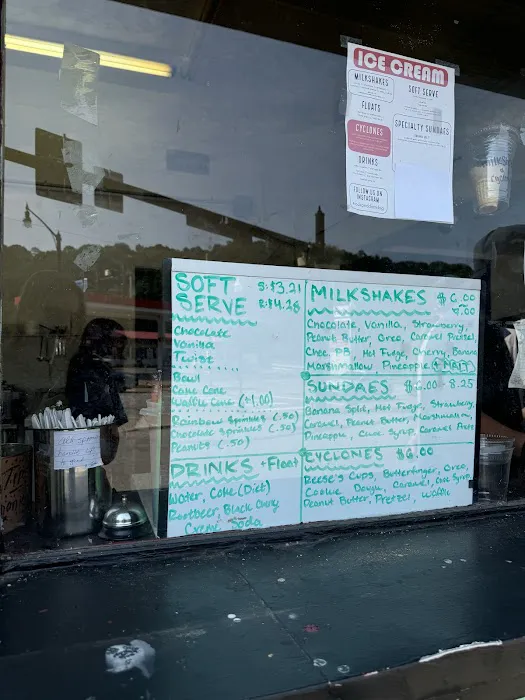 ICE CREAM
MILKSHAKES
SOFT SERVE
FLOATS
CYCLONES
SPECIALTY SUNDAES
DRINKS
FOLLOW US ON
INSTAGRAM
SOFT S: $3.21
SERVE R: $4.28
Chocolate
Vanilla
Twist
Bowl
Cake Cone
Waffle Cone (+1.00)
Rainbow Sprinkles (.50)
Chocolate Sprinkles (.50)
Peanuts (.50)
DRINKS + Float
Water, Coke (Diet)
Rootbeer, Black Cherry
Creme Soda
MILKSHAKES $6.00
7.00
Chocolate, Vanilla, Strawberry,
Peanut Butter, Oreo, Caramel Pretzel,
Choc PB, Hot Fudge, Cherry, Banana
Marshmallow Pineapple + MALT
SUNDAES 8.25
Banana Split, Hot Fudge, Strawberry
Caramel, Peanut Butter, Marshmallow,
Pineapple, Choc Syrup, Caramel Pretz
CYCLONES $6.00
Reese's Cups, Butterfinger, Oreo,
Cookie Dough, Caramel, Choc Syrup
Peanut Butter, Pretzel, Waffle